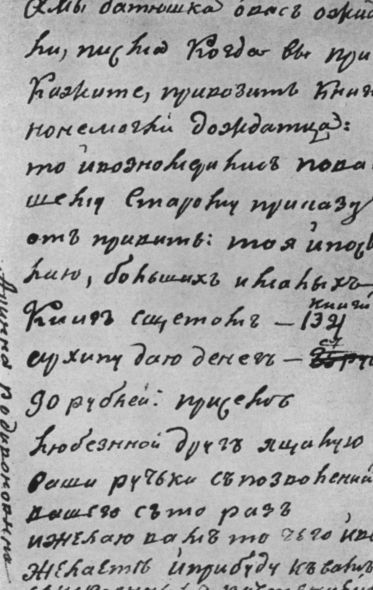 Амы батюшка отвасъ ожид
ли, писма Когда вы при
кажите, привозитъ Книг
нонемогли дождатца:
то йвознамерилисъ пова
шему старому приказу
отъ править: тоя йпосы
лаю, большихъ ималыхъ
Книгъ сщетомъ — 134
книги
архипу даю денегъ —
90 рублей: присемъ
любезнной другъ яцалую
ваши ручьки съпозволений
вашего съто разъ
ижелаю вамъ то чего ивы
желаетѣ йприбуду къвамъ
Арина Родивоновна